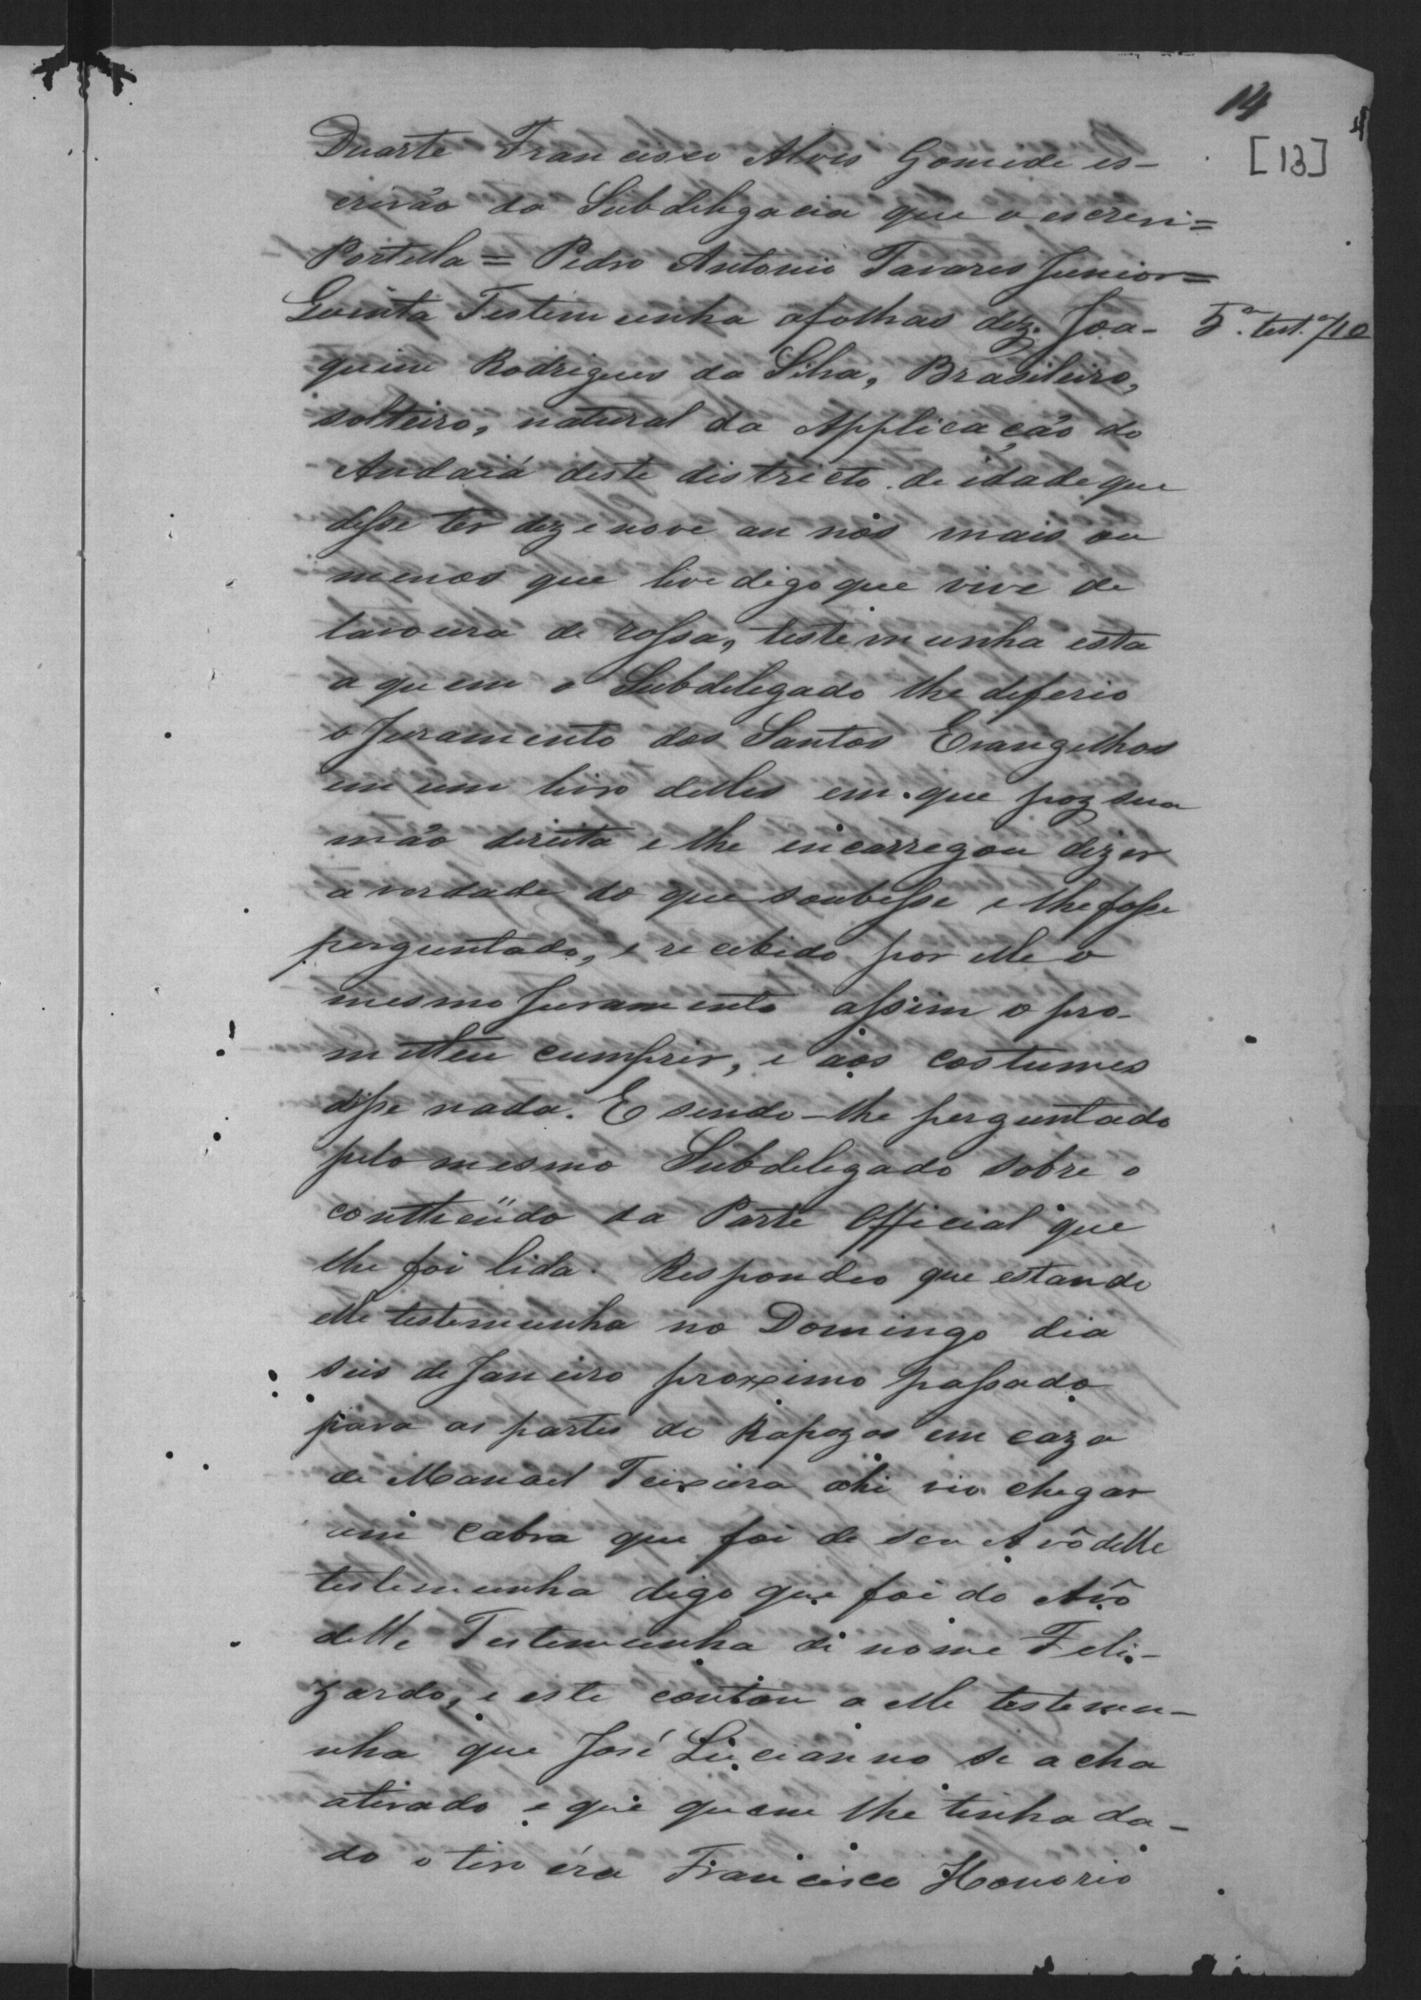 14
[13]
Duarte Francisco Alves Gomide es-
crivão da Subdelegacia que o escrevi=
Portella = Pedro Antonio Tavares Junior=
Quinta Testemunha afolhas dez. Joa-
5ª. test.ª /10
quim Rodrigues da Silva, Brasileiro,
solteiro, natural da Applicação do
Andaiá deste districto de idade que
disse ter dezenove annos mais ou
menos que live digo que vive de
lavoura de rossa, testemunha esta
a quem o Subdelegado lhe deferio
o Juramento dos Santos Evangelhos
em um livro delles em que poz sua
mão direita e lhe encarregou dizer
a verdade do que soubesse e lhe fosse
perguntado, e recebido por elle o
mesmo Juramento assim o pro-
metteu cumprir, e aos costumes
disse nada. E sendo-lhe perguntado
pelo mesmo Subdelegado sobre o
contheüdo da Parte Official que
lhe foi lida. Respondeo que estando
elle testemunha no Domingo dia
seis de Janeiro proximo passado
para as partes de Rapozos em caza
de Manoel Teixeira ahi vio chegar
um cabra que foi de seu Avô delle
testemunha digo que foi do Avô
delle Testemunha de nome Feli-
zardo, e este contou a elle testemu-
nha que José Lucianno se acha
atirado e que quem lhe tinha da-
do o tiro éra Francisco Honorio